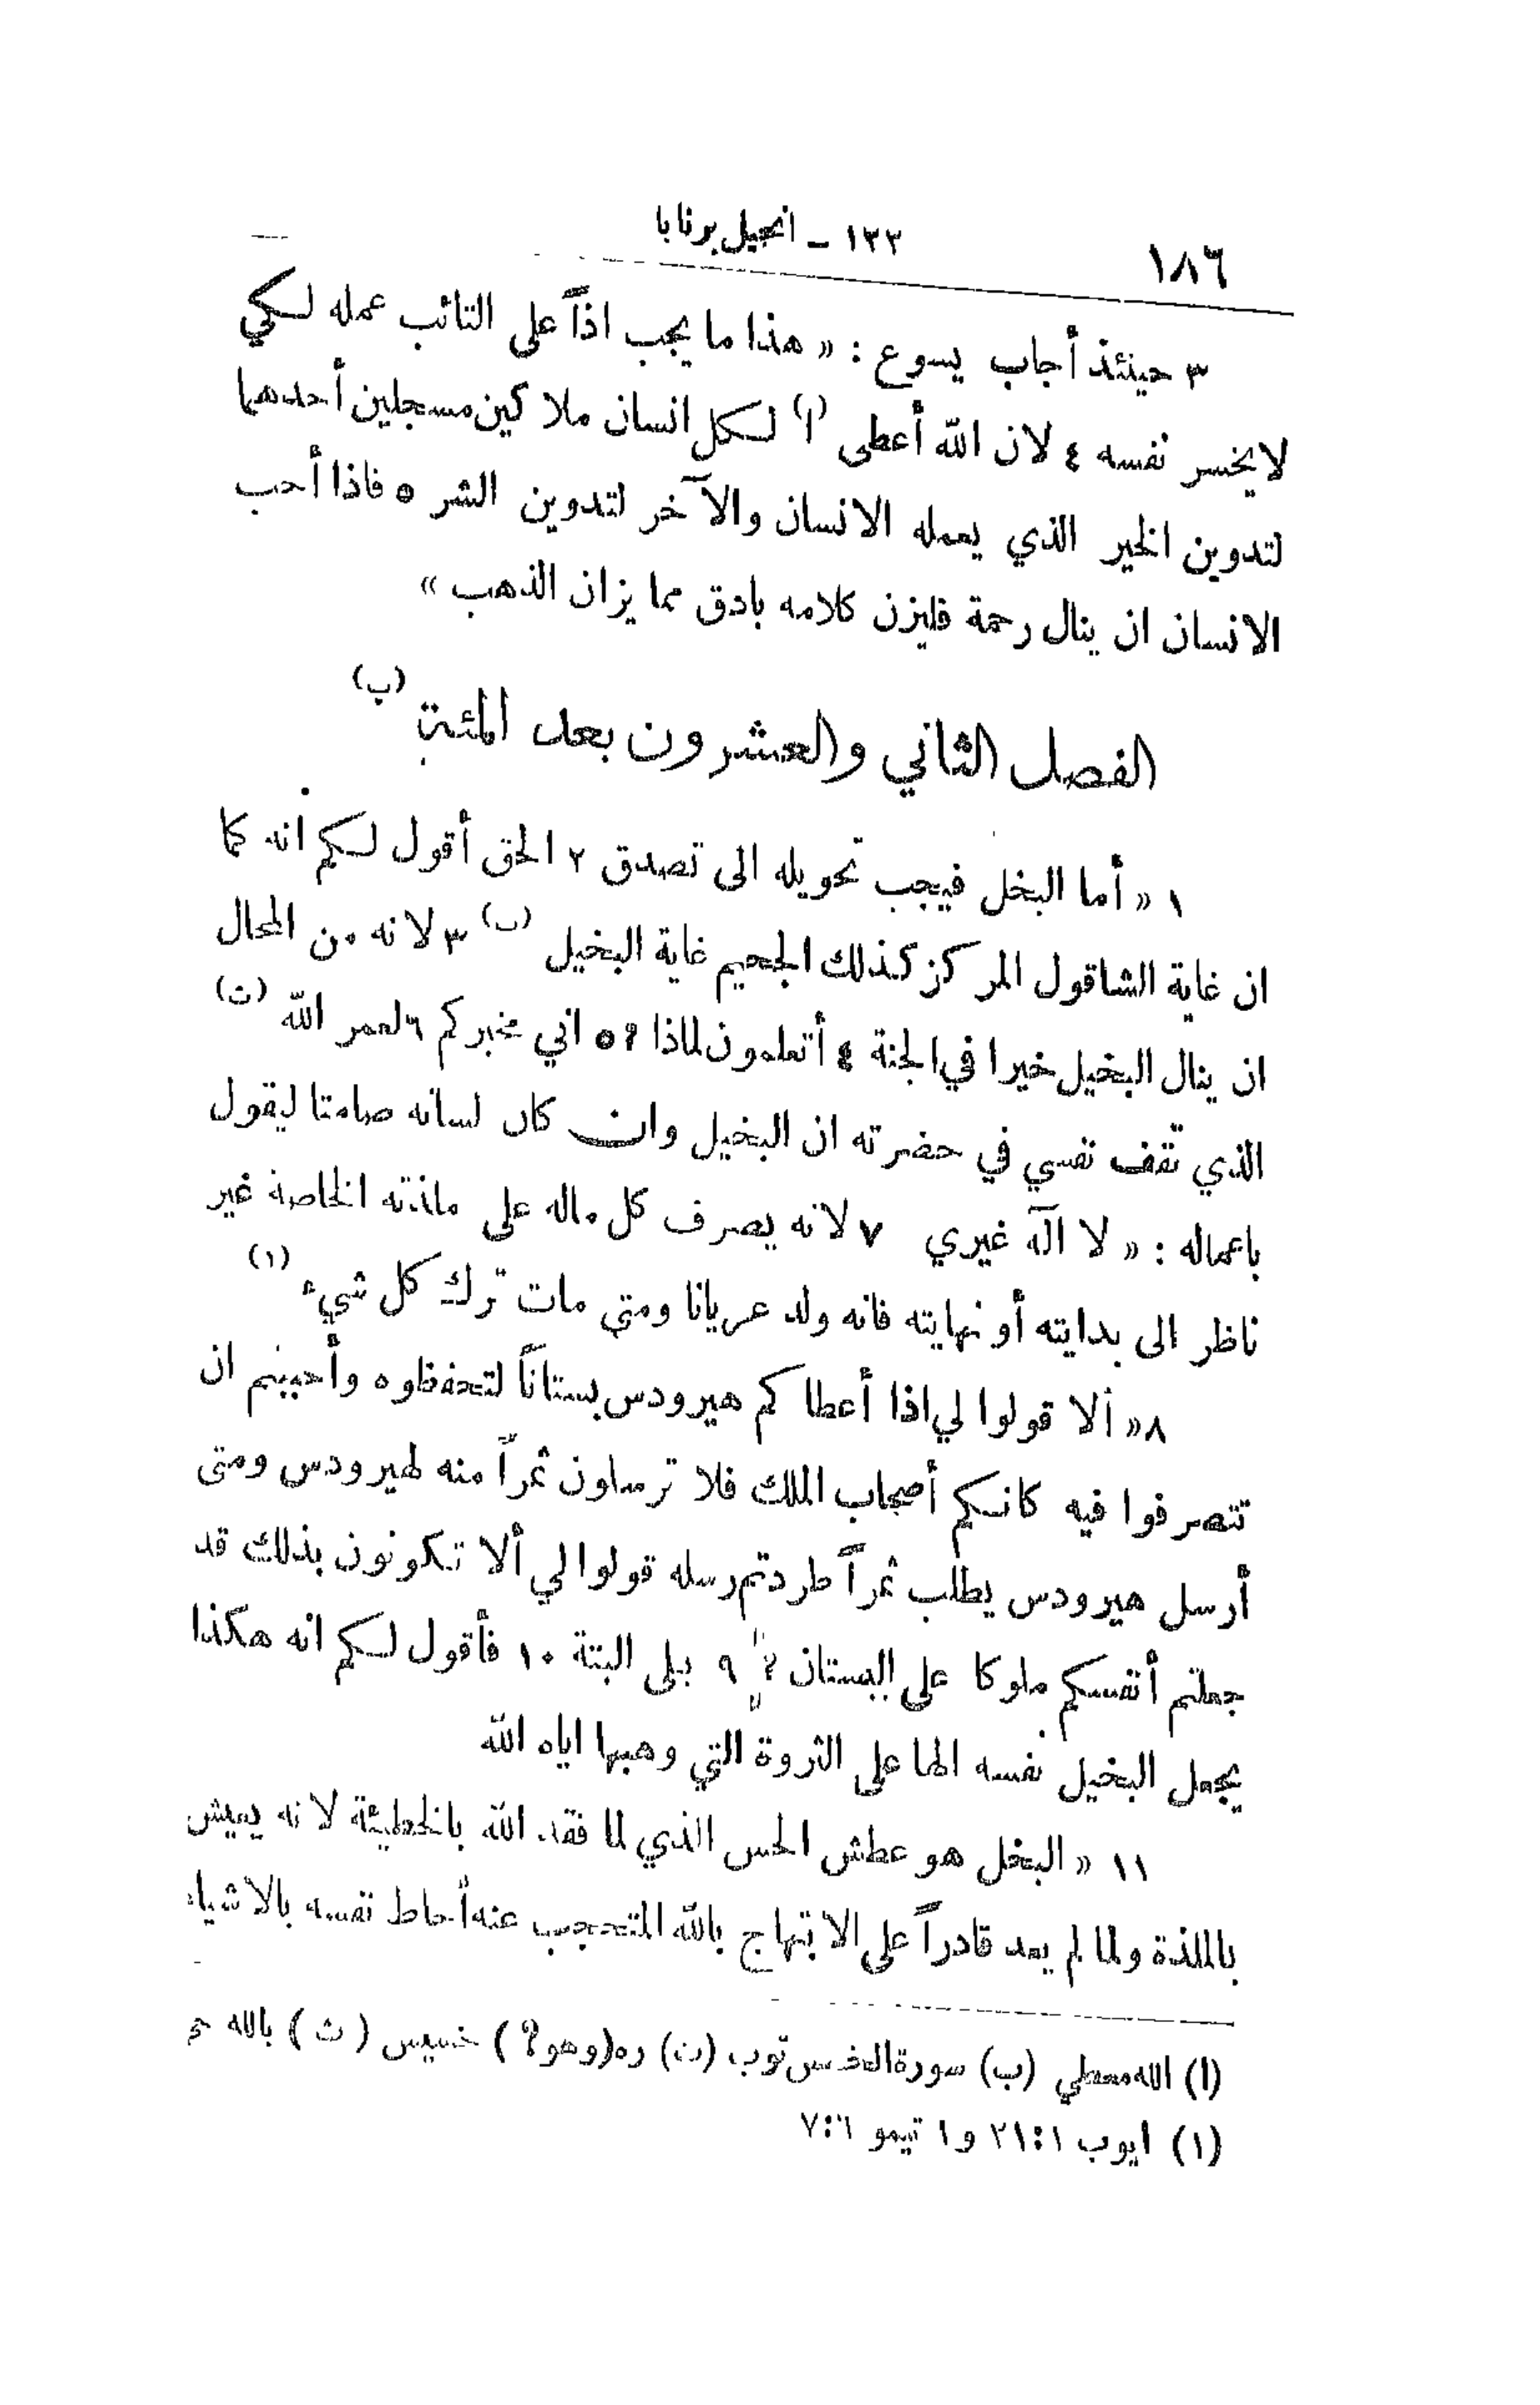 ١٨٦
١٢٢ – انجيل برنابا
٣ حينئذ أجاب يسوع : « هذا ما يجب اذاً على التائب عمله لكي
لا يخسر نفسه ٤ لان الله أعطى (ا) لكل انسان ملاكين مسجلين أحدهما
لتدوين الخير الذي يعمله الانسان والآخر لتدوين الشر ٥ فاذا أحب
الانسان ان ينال رحمة فليزن كلامه بادق مما يزان الذهب »
الفصل الثاني والعشرون بعد المئة (ب)
١ « أما البخل فيجب تحويله الى تصدق ٢ الحق أقول لكم انه كما
ان غاية الشاقول المركز كذلك الجحيم غاية البخيل (ت) ٣ لانه من المحال
ان ينال البخيل خيرا في الجنة ٤ أتعلمون لماذا ؟ ٥ اني مخبركم ٦ لعمر الله (ث)
الذي تقف نفسي في حضرته ان البخيل وان كان لسانه صامتا ليقول
باعماله : « لا آله غيري ٧ لانه يصرف كل ماله على ملذته الخاصة غير
ناظر الى بدايته أو نهايته فانه ولد عريانا ومتى مات ترك كل شيء (١)
٨ « ألا قولوا لي اذا أعطاكم هيرودس بستاناً لتحفظوه وأحببتم ان
تتصرفوا فيه كانكم أصحاب الملك فلا ترسلون ثمراً منه لهيرودس ومتى
أرسل هيرودس يطلب ثمراً طردتم رسله قولوا لي ألا تكونون بذلك قد
جعلتم أنفسكم ملوكا على البستان ؟ ٩ بلى البتة ١٠ فأقول لكم انه هكذا
يجعل البخيل نفسه الها على الثروة التي وهبها اياه الله
١١ « البخل هو عطش الحس الذي لما فقد الله بالخطيئة لانه يعيش
باللذة ولما لم يعد قادراً على الابتهاج بالله المتحجب عنه أحاط نفسه بالاشياء
(ا) الله معطي (ب) سورة توب (ت) ره (وهو ؟) خسيس (ث) بالله حي
(١) ايوب ٢١:١ و١ تيمو ٧:٦